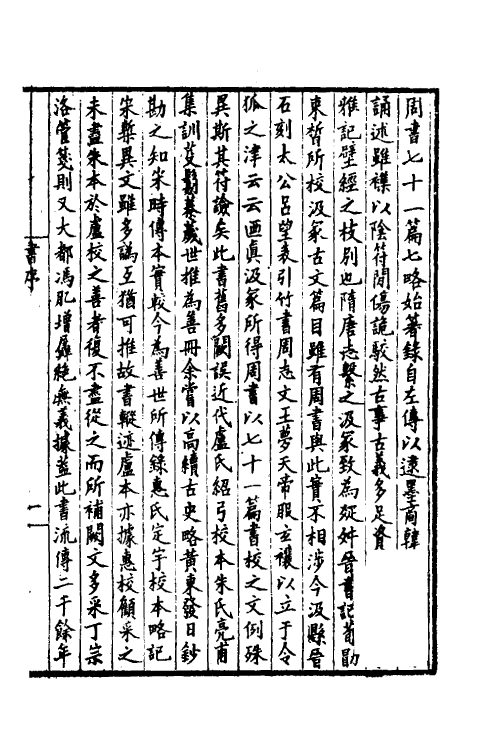 周書七十一篇七略始箸錄自左傳以逮墨商韓
誦述雖襍以陰符閒傷詭駮然古事古義多足資
雅記壁經之枝別也隋唐志繫之汲冢致為疑舛晉書記荀勖
束晳所校汲冢古文篇目雖有周書與此實不相涉今汲縣晉
石刻太公呂望表引竹書周志文王夢天帝服玄禳以立于令
狐之津云云迺真汲冢所得周書以七十一篇書校之文例殊
異斯其符譣矣此書舊多闕誤近代盧氏紹弓校本朱氏亮甫
集訓芟鬄蓁薉世推為善冊余嘗以高續古史略黃東發日鈔
勘之知宋時傳本實較今為善世所傳錄惠氏定宇校本略記
宋槧異文雖多譌互猶可推故書轍迹盧本亦據惠校顧采之
未盡朱本於盧校之善者復不盡從之而所補闕文多采丁宗
洛管箋則又大都馮肊增羼絶無義據葢此書流傳二千餘年
書序
一